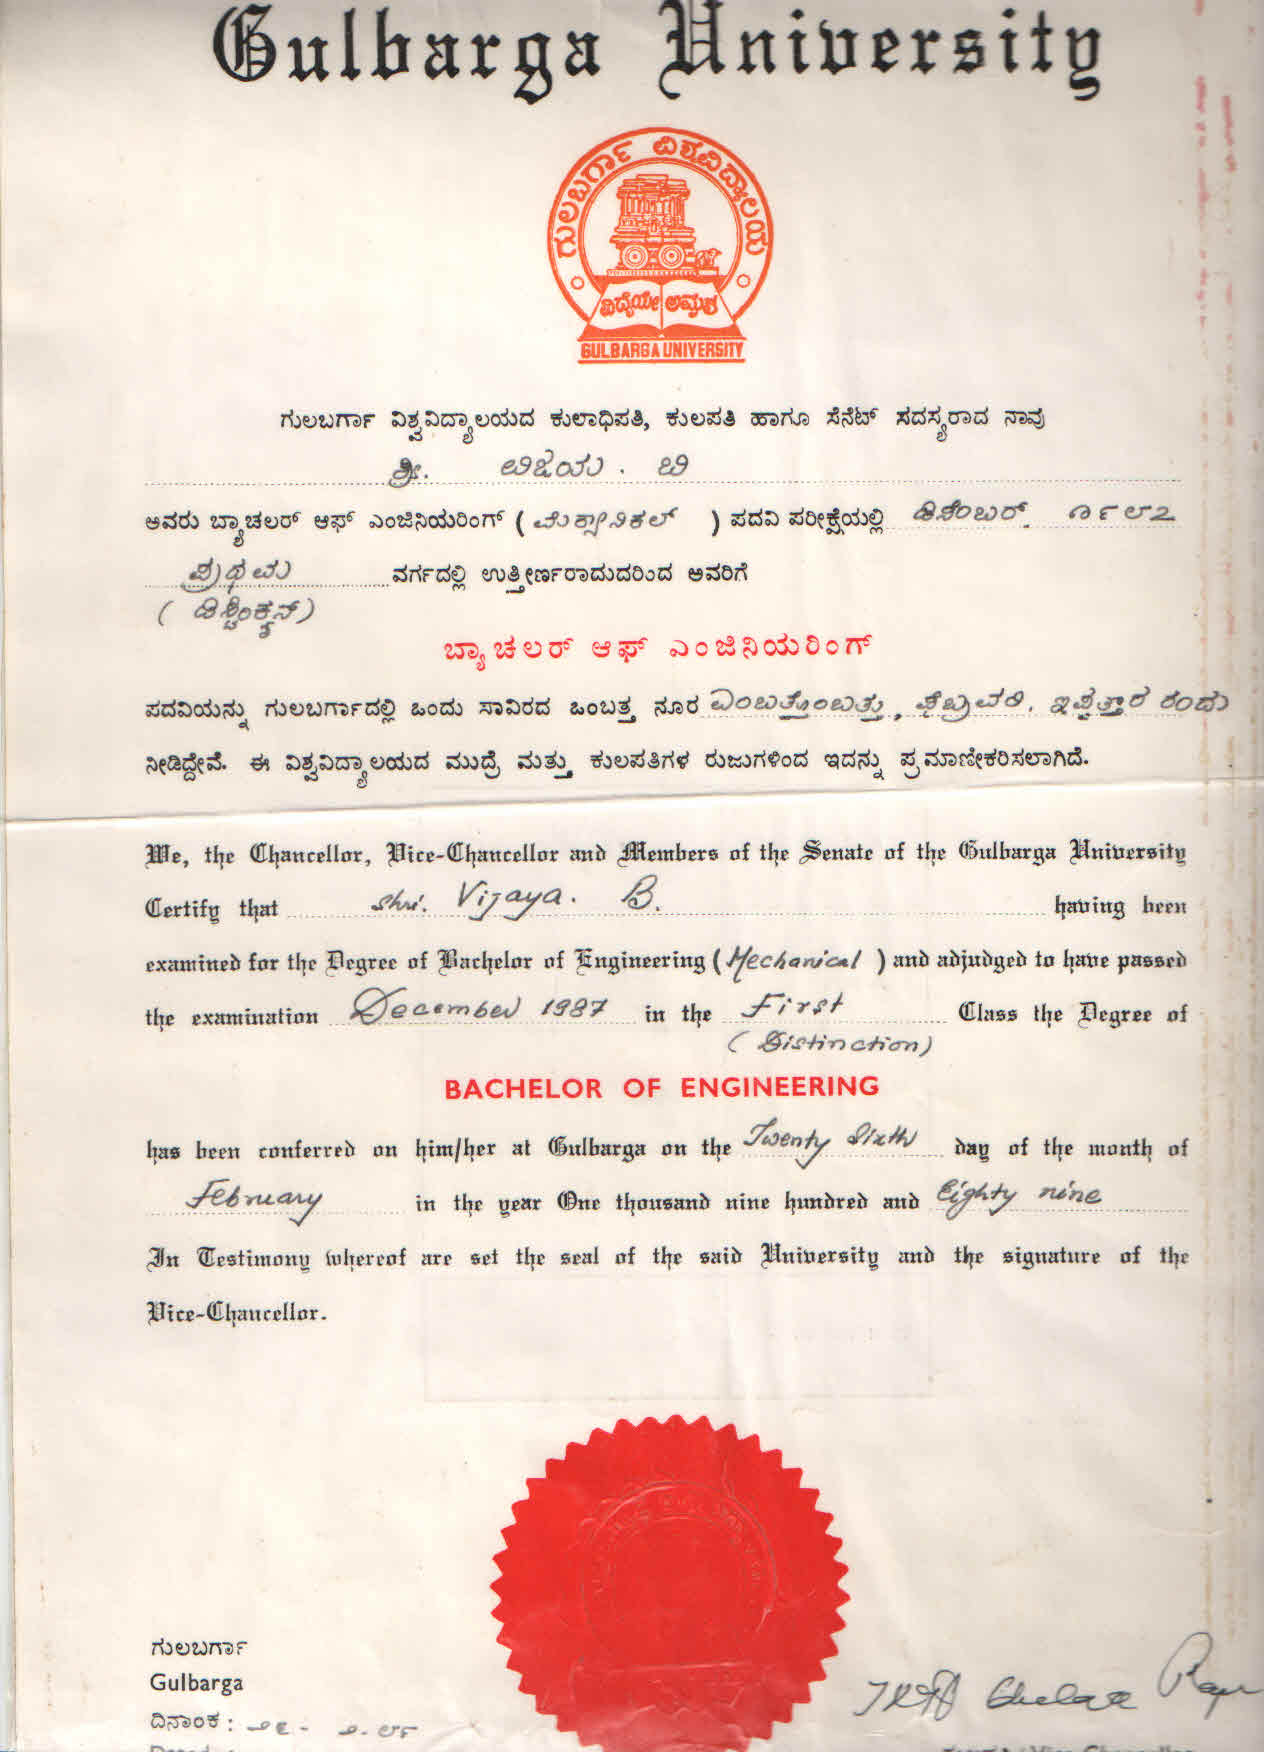 Gulbarga University
ಗುಲಬರ್ಗಾ ವಿಶ್ವವಿದ್ಯಾಲಯ
ವಿದ್ಯೆಯೇ ಅಮೃತ
GULBARGA UNIVERSITY
ಗುಲಬರ್ಗಾ ವಿಶ್ವವಿದ್ಯಾಲಯದ ಕುಲಾಧಿಪತಿ, ಕುಲಪತಿ ಹಾಗೂ ಸೆನೆಟ್ ಸದಸ್ಯರಾದ ನಾವು
ಶ್ರೀ. ವಿಜಯ. ಬಿ
ಅವರು ಬ್ಯಾಚಲರ್ ಆಫ್ ಎಂಜಿನಿಯರಿಂಗ್ (ಮೆಕ್ಯಾನಿಕಲ್) ಪದವಿ ಪರೀಕ್ಷೆಯಲ್ಲಿ ಡಿಸೆಂಬರ್. ೧೯೮೭
ಪ್ರಥಮ ವರ್ಗದಲ್ಲಿ ಉತ್ತೀರ್ಣರಾದುದರಿಂದ ಅವರಿಗೆ
(ಡಿಸ್ಟಿಂಕ್ಷನ್)
ಬ್ಯಾಚಲರ್ ಆಫ್ ಎಂಜಿನಿಯರಿಂಗ್
ಪದವಿಯನ್ನು ಗುಲಬರ್ಗಾದಲ್ಲಿ ಒಂದು ಸಾವಿರದ ಒಂಬತ್ತ ನೂರ ಎಂಬತ್ತೊಂಬತ್ತು, ಫೆಬ್ರುವರಿ, ಇಪ್ಪತ್ತಾರ ರಂದು
ನೀಡಿದ್ದೇವೆ. ಈ ವಿಶ್ವವಿದ್ಯಾಲಯದ ಮುದ್ರೆ ಮತ್ತು ಕುಲಪತಿಗಳ ರುಜುಗಳಿಂದ ಇದನ್ನು ಪ್ರಮಾಣೀಕರಿಸಲಾಗಿದೆ.
We, the Chancellor, Vice-Chancellor and Members of the Senate of the Gulbarga University
Certify that Shri. Vijaya. B. having been
examined for the Degree of Bachelor of Engineering (Mechanical) and adjudged to have passed
the examination December 1987 in the First Class the Degree of
(Distinction)
BACHELOR OF ENGINEERING
has been conferred on him/her at Gulbarga on the Twenty Sixth day of the month of
February in the year One thousand nine hundred and Eighty nine
In Testimony whereof are set the seal of the said University and the signature of the
Vice-Chancellor.
ಗುಲಬರ್ಗಾ
Gulbarga
ದಿನಾಂಕ : ೨೬- ೨-೮೯